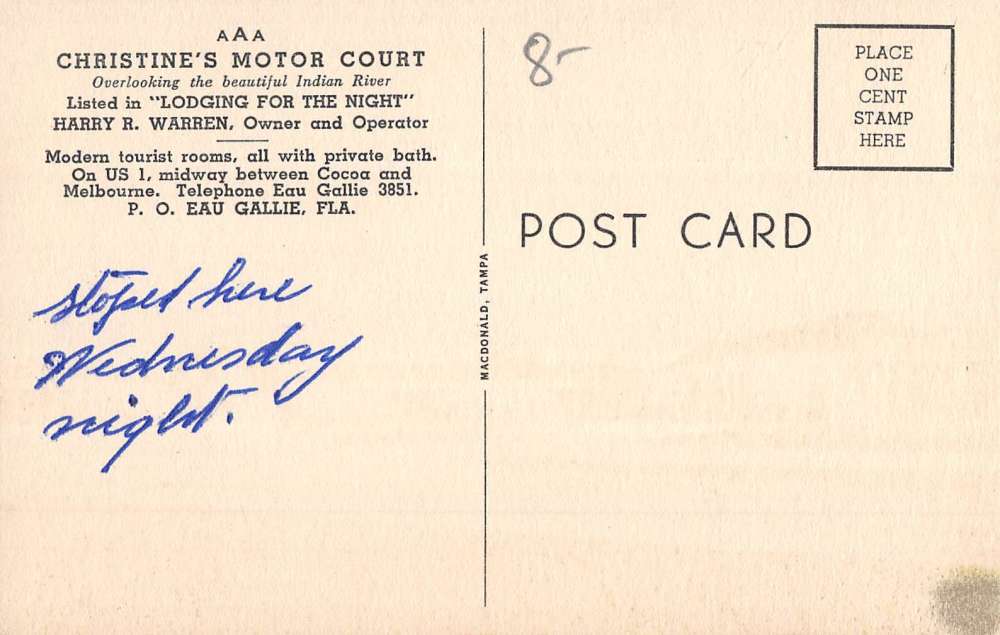 AAA
CHRISTINE'S MOTOR COURT
Overlooking the beautiful Indian River
Listed in "LODGING FOR THE NIGHT"
HARRY R. WARREN, Owner and Operator
Modern tourist rooms, all with private bath.
On US 1, midway between Cocoa and
Melbourne. Telephone Eau Gallie 3851.
P. O. EAU GALLIE, FLA.
stoped here
Wednesday
night.
MACDONALD, TAMPA
8-
PLACE
ONE
CENT
STAMP
HERE
POST CARD